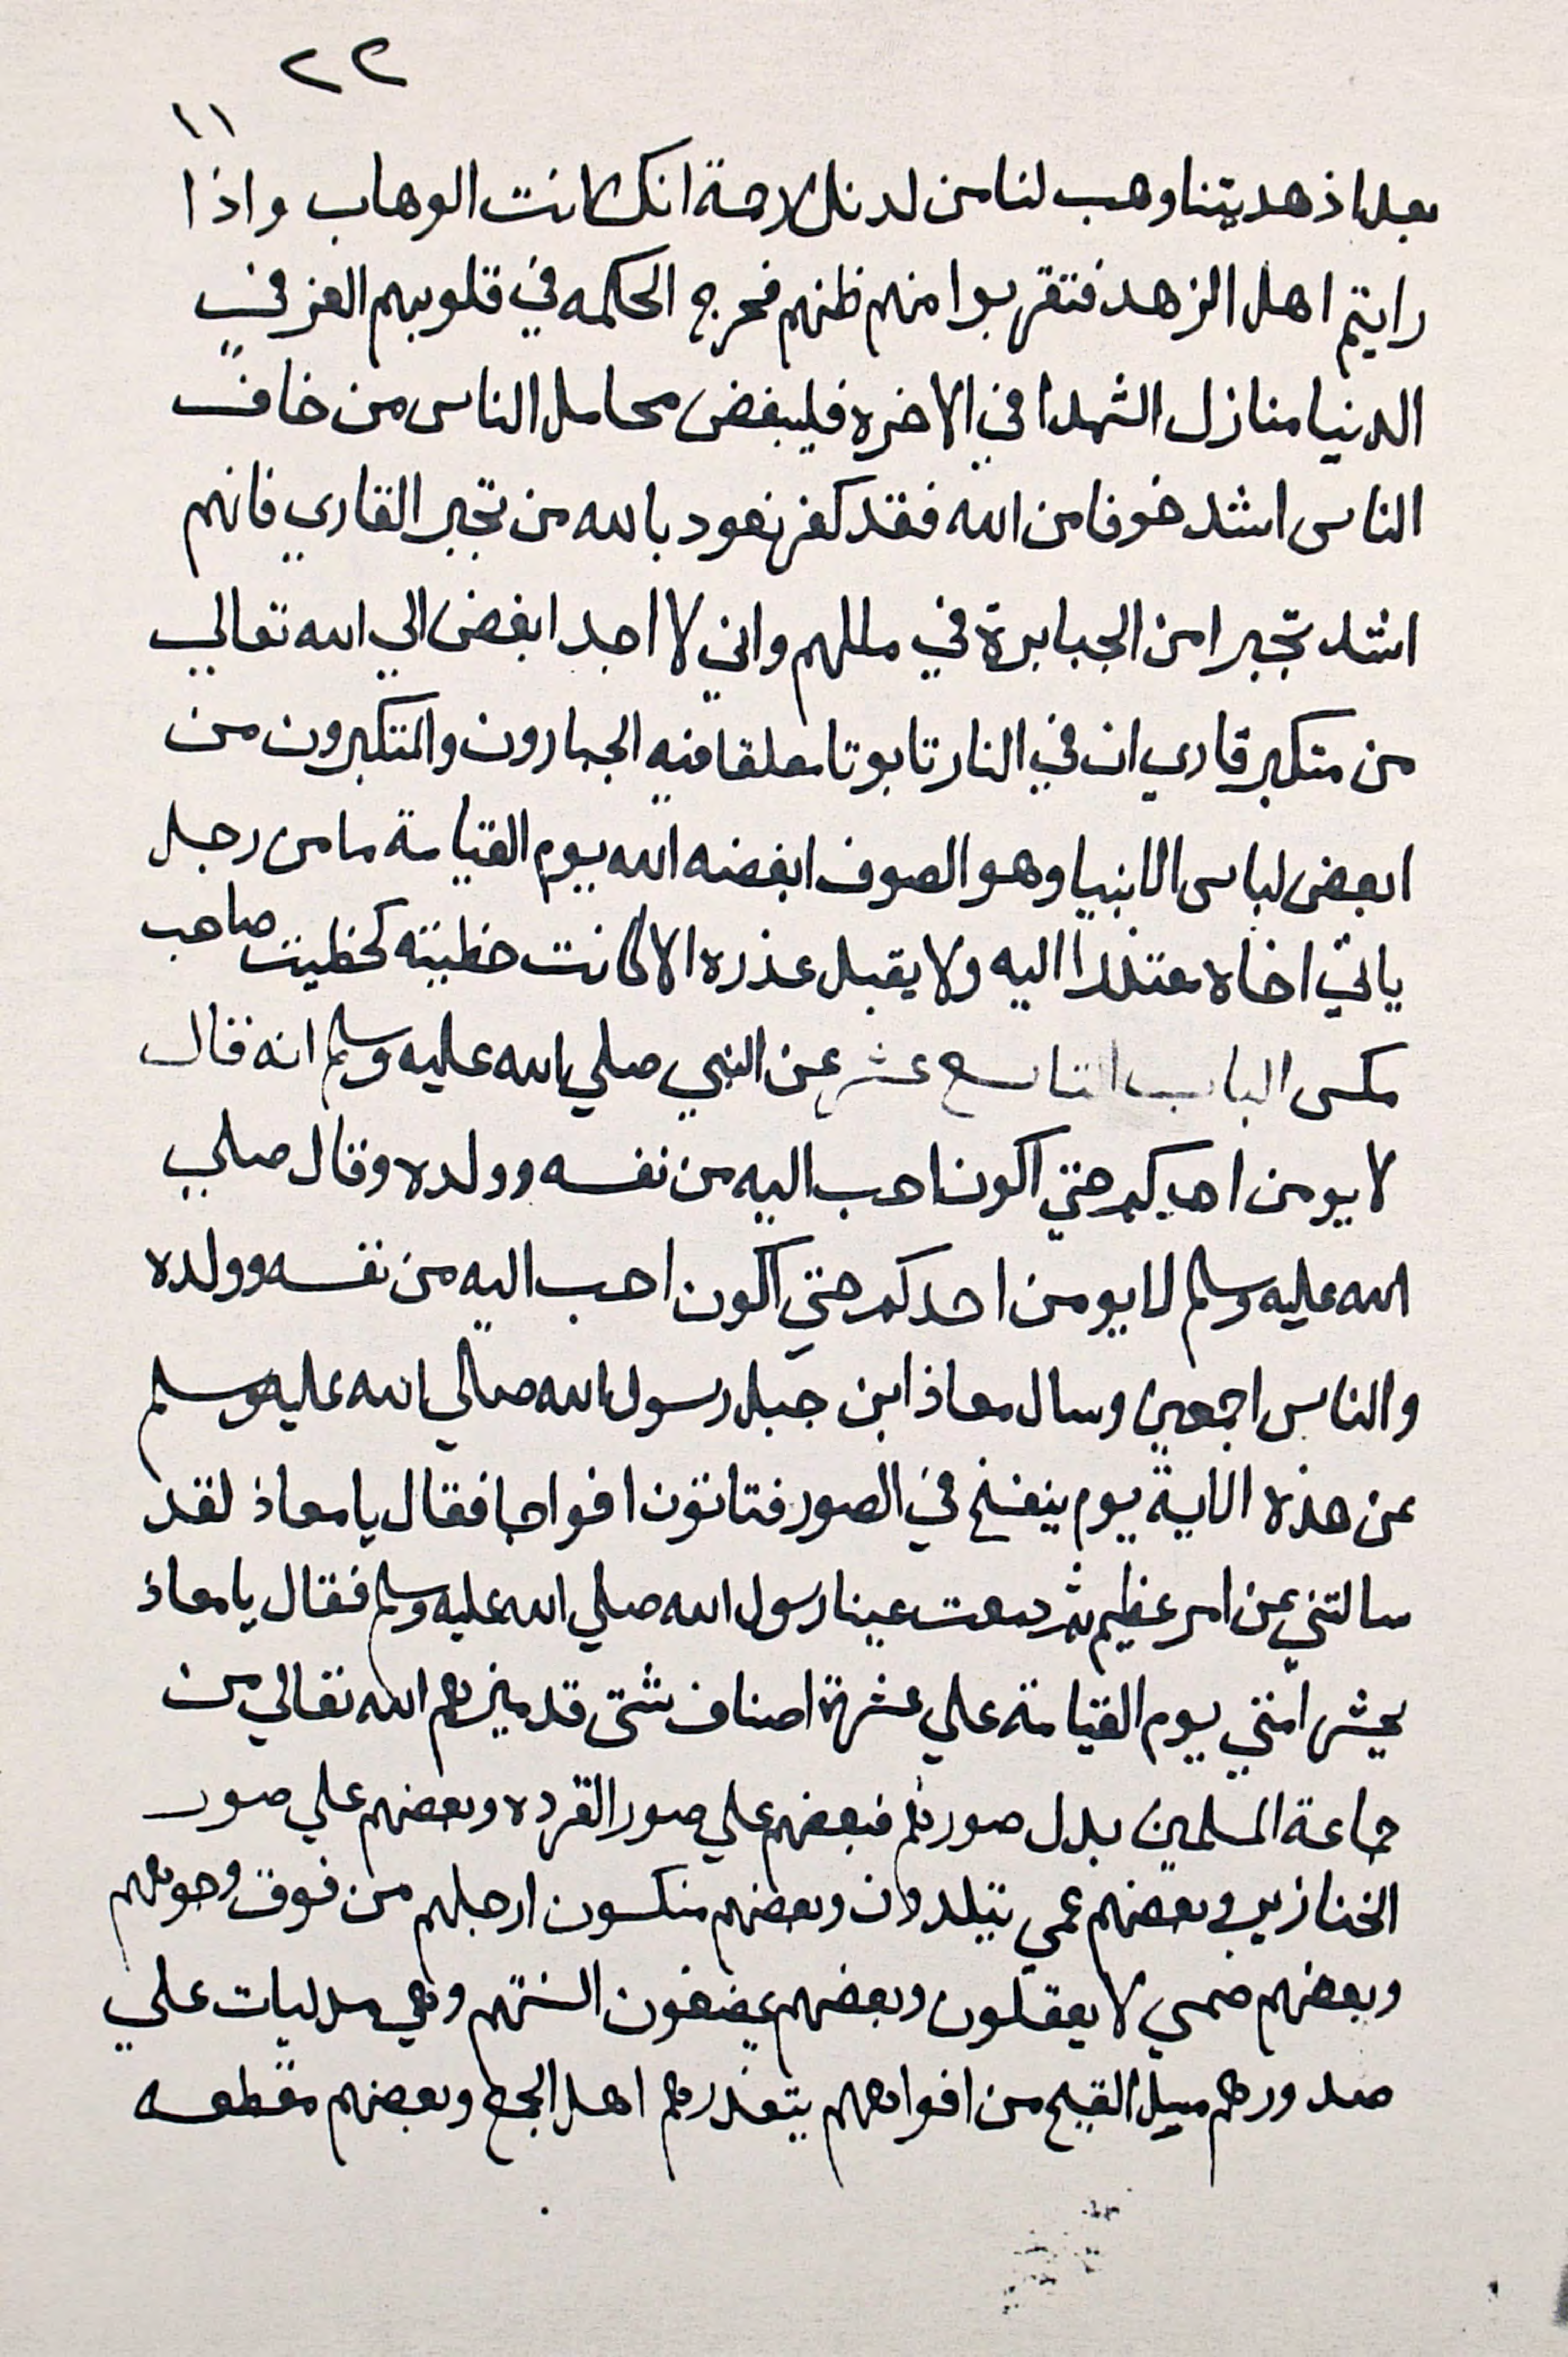 ٢٢
١١
بعد اذ هديتنا وهب لنا من لدنك رحمة انك انت الوهاب واذا
رايتم اهل الزهد فتقربوا منهم ظنهم فحرج الحكمه في قلوبهم العز في
الدنيا منازل الشهدا في الاخره فليبغض محامل الناس من خاف
الناس اشد خوفا من الله فقد كفر نعود بالله من تجبر القاري فانهم
اشد تجبرا من الجبابرة في مللهم واني لا اجد ابغض الي الله تعالي
من متكبر قاري ان في النار تابوتا معلقا فيه الجبارون والمتكبرون من
ابعض لباس الانبيا وهو الصوف ابغضه الله يوم القيامة ما من رجل
ياتي اخاه معتذرا اليه ولا يقبل عذره الا كانت خطيته كخطيت صاحب
مكس الباب التاسع عشر عن النبي صلي الله عليه وسلم انه قال
لا يومن احدكم حتي اكون احب اليه من نفسه وولده وقال صلي
الله عليه وسلم لا يومن احدكم حتي اكون احب اليه من نفسه وولده
والناس اجمعين وسال معاذ ابن جبل رسول الله صلي الله عليه وسلم
عن هذه الاية يوم ينفخ في الصور فتاتون افواجا فقال يا معاذ لقد
سالتني عن امر عظيم ثم دمعت عينا رسول الله صلي الله عليه وسلم فقال يا معاذ
يحشر امتي يوم القيامة علي عشرة اصناف شتى قد ميزهم الله تعالي من
جماعة المسلمين بدل صورهم فبعضهم علي صور القرده وبعضهم علي صور
الخنازير وبعضهم عمي يتلددون وبعضهم منكسون ارجلهم من فوق وجوههم
وبعضهم صمي لا يعقلون وبعضهم يمضغون السنتهم وهي مدليات علي
صدورهم يسيل القيح من افواههم يتقذرهم اهل الجمع وبعضهم مقطعه